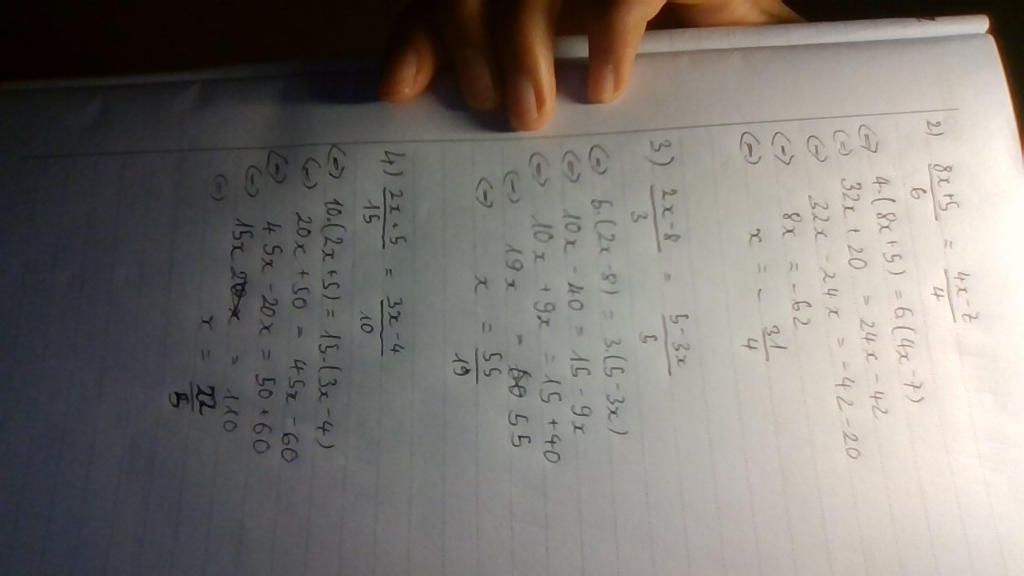 2) 8x+5/6 = 4x-7/4
(=) 4.(8x+5) = 6(4x-7)
(=) 32x+20 = 24x-42
(=) 32x-24x = -42-20
(=) 8x = -62
(=) x = -31/4
3) 2x-8/3 = 5-3x/5
(=) 5.(2x-8) = 3.(5-3x)
(=) 10x-40 = 15-9x
(=) 10x+9x = 15+40
(=) 19x = 55
(=) x = 55/19
4) 2x+5/15 = 3x-4/10
(=) 10.(2x+5) = 15.(3x-4)
(=) 20x+50 = 45x-60
(=) 45x-20x = 50+60
(=) 15x = 110
(=) x = 22/5